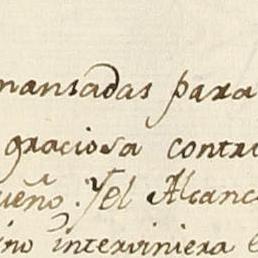 mansadas para
graciosa contr
ueño. Yel Alcanc
ino interviniera e